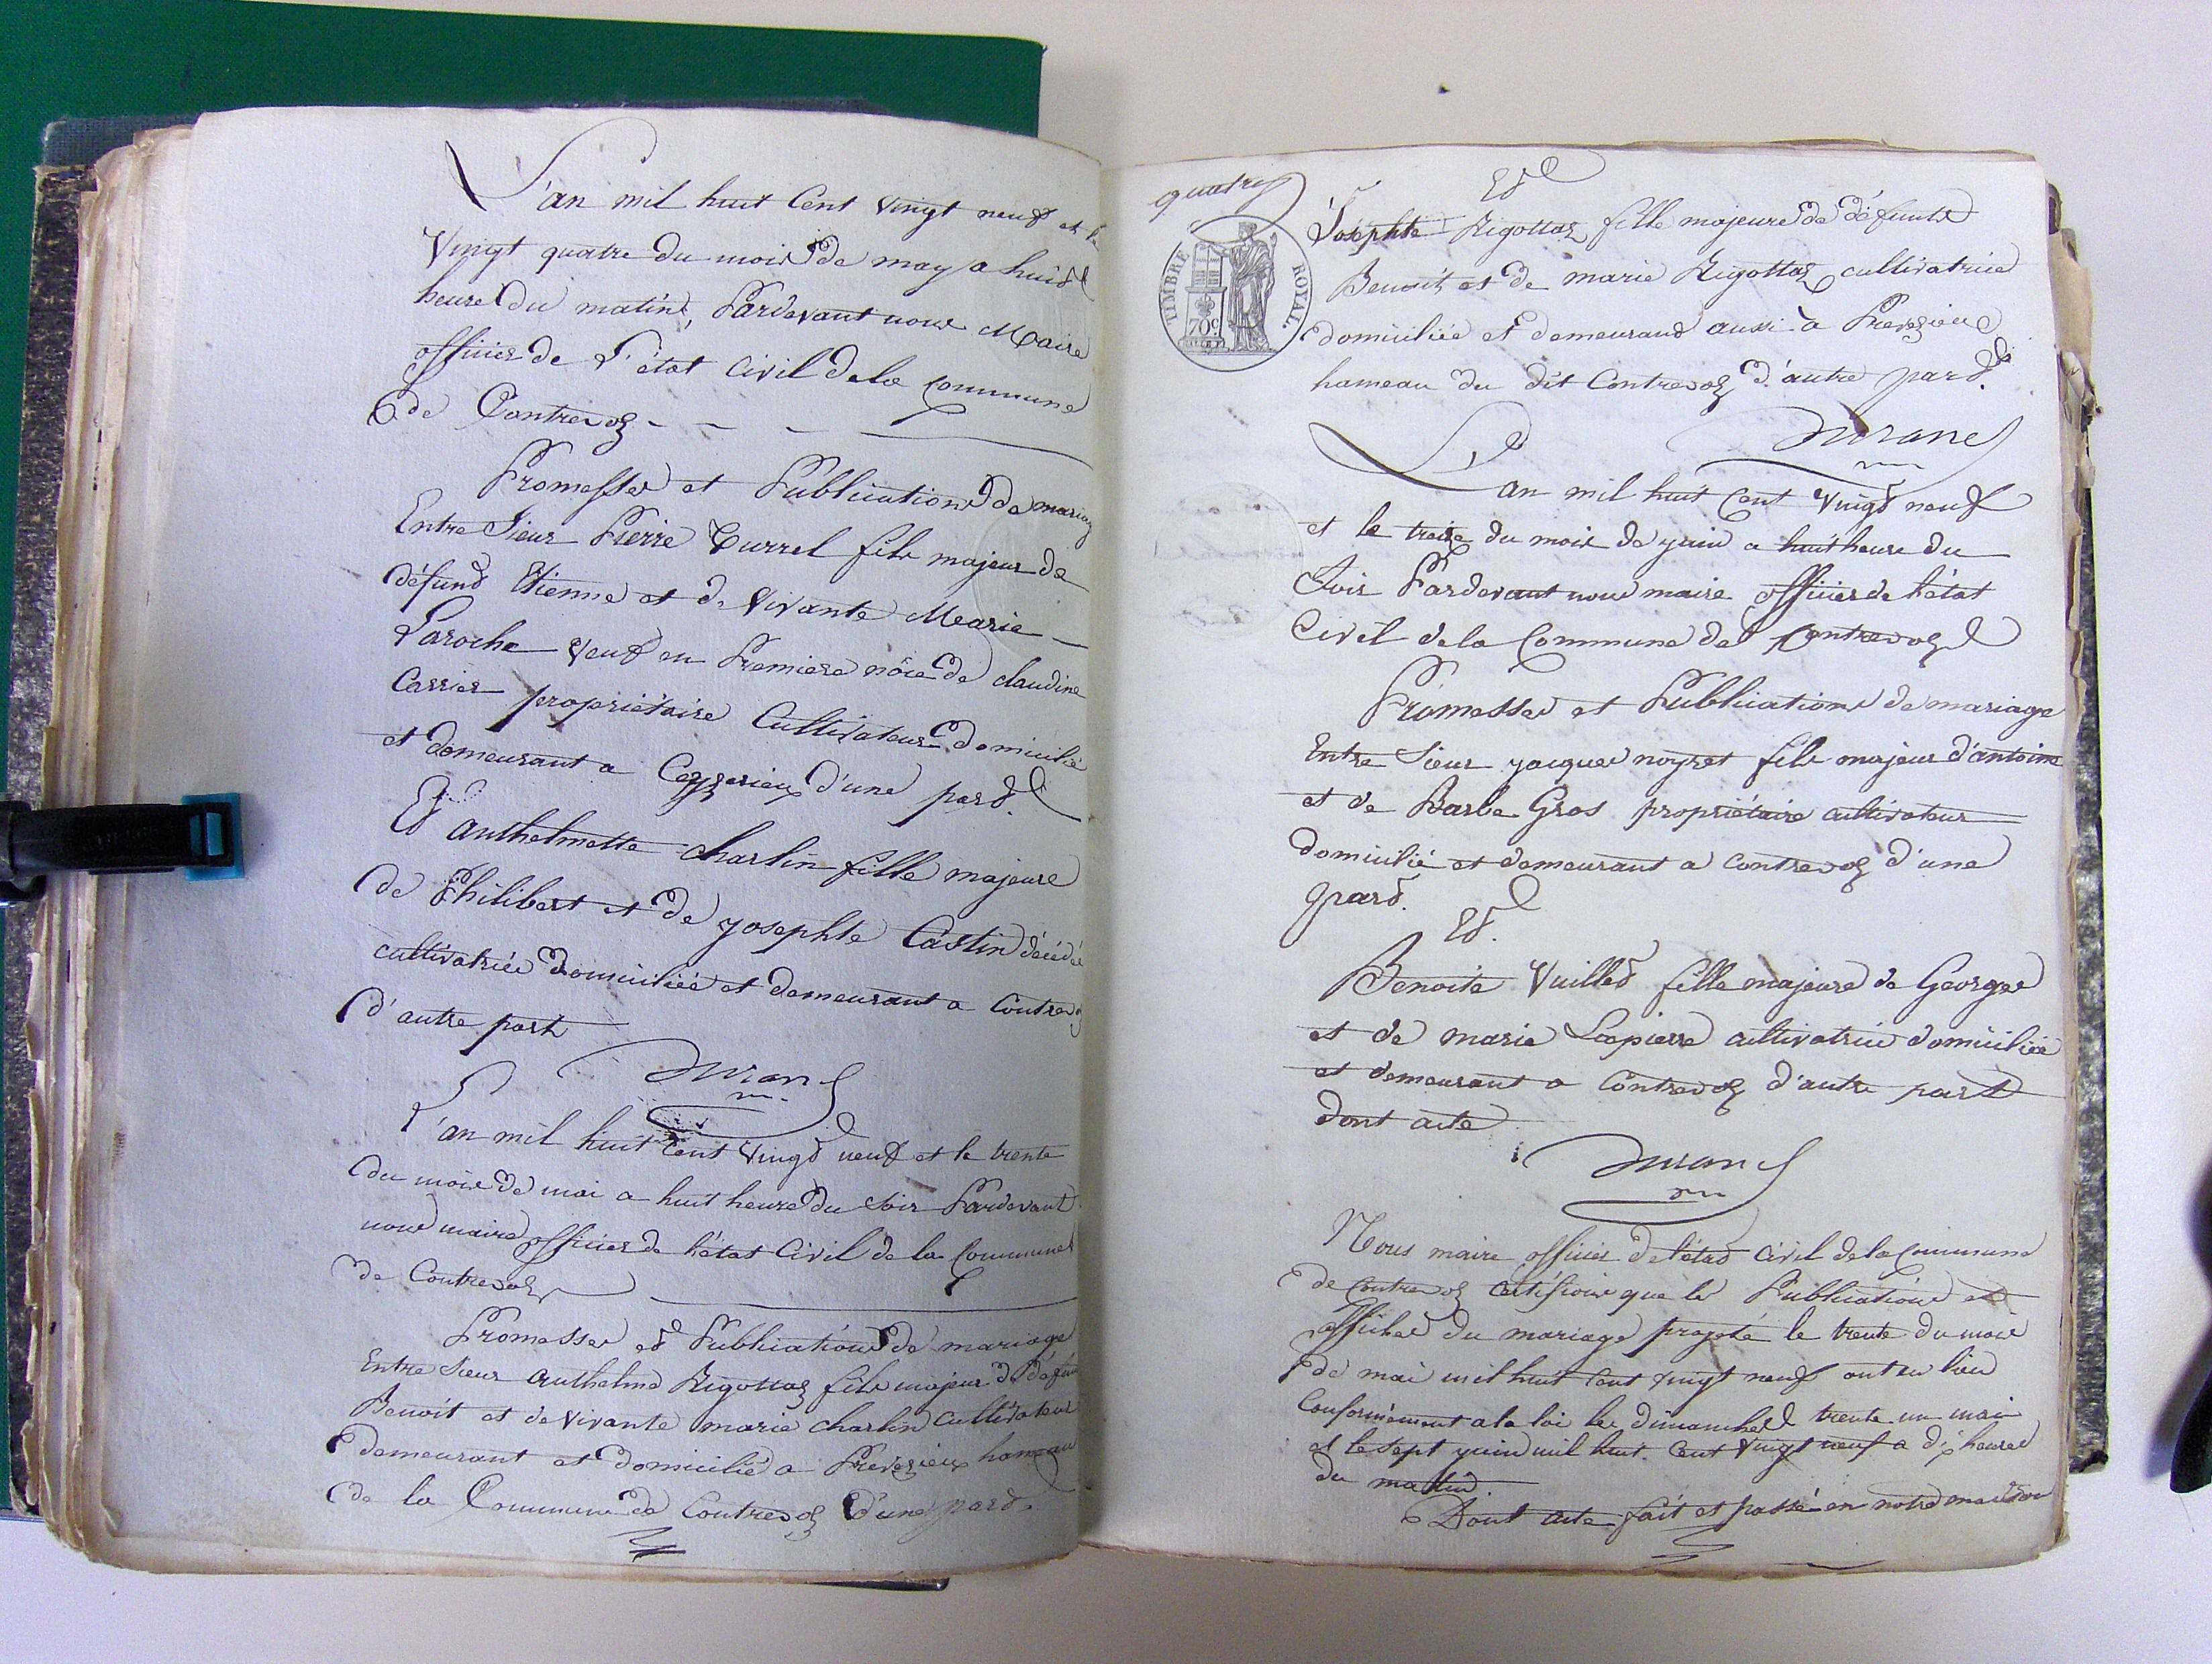 L'an mil huit Cent vingt neuf et le
Vingt quatre du mois de may a huit
heure du matin, Pardevant nous Maire
officier de l'état Civil de la Commune
de Contrevoz
Promesses et Publications de mariag
Entre Sieur Pierre Turrel fils majeur de
défund Etienne et de vivante Marie
Laroche veuf en Premiere nôce de claudine
Carrier propriétaire Cultivateur domicilié
et demeurant a Ceyzerieux d'une pard.
Ed anthelmette charlin fille majeure
de Philibert et de josephte Castin décédé
cultivatrice domiciliée et demeurant a Contrevoz
d'autre part
Durand
L'an mil huit Cent vingd neuf et le trente
du mois de mai a huit heure du soir Pardevant
nous maire officier de l'état Civil de la Commune
de Contrevoz
Promesses ed Publications de mariage
Entre Sieur anthelme Rigottaz fils majeur de défun
Benoit et de vivante marie charlin cultivateur
demeurant et domicilié a Prevezieux hameau
de la Commune de Contrevoz d'une pard.
quatre
Ed
TIMBRE ROYAL.
70c
Josephte Rigottaz fille majeure de défunts
Benoit et de marie Rigottaz cultivatrice
domiciliée et demeurand aussi a Prevezieux
hameau du dit Contrevoz d'autre pard.
Durand
L'an mil huit Cent vingd neuf
et le treize du mois de juin a huit heure du
Soir Pardevant nous maire officier de l'état
Civil de la Commune de Contrevoz
Promesses et Publications de mariage
Entre Sieur jacques noyret fils majeur d'antoine
et de Barbe Gros propriétaire cultivateur
domicilié et demeurant a Contrevoz d'une
pard.
Ed.
Benoite Vuilled fille majeure de Georges
et de marie Lapierre cultivatrice domiciliée
et demeurant a Contrevoz d'autre part
dont acte
Durand
Nous maire officier de l'étad civil de la Commune
de Contrevoz certifions que les Publications et
affiches du mariage projeté le trente du mois
de mai mil huit Cent vingt neuf ont eu lieu
Conformément a la loi les dimanches trente un mai
et le sept juin mil huit Cent vingt neuf a dix heures
du matin.
Dont acte fait et passé en notre maison